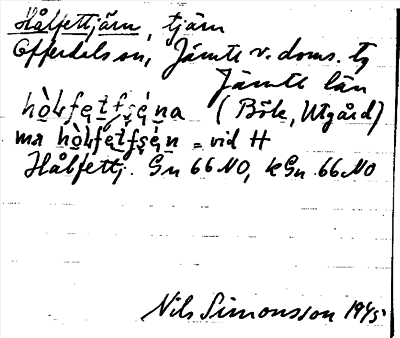 Hålfettjärn, tjärn
Offerdals sn, Jämtl. v. doms. tg
Jämtl. län
hò̱ɫfe̱t̯f̯ṣé̱na (Böle, Utgård)
ma hò̱ɫfe̱t̯f̯ṣé̱n = vid H
Hålfettj. Gn 66 NO, kGn 66 NO
Nils Simonsson 1945